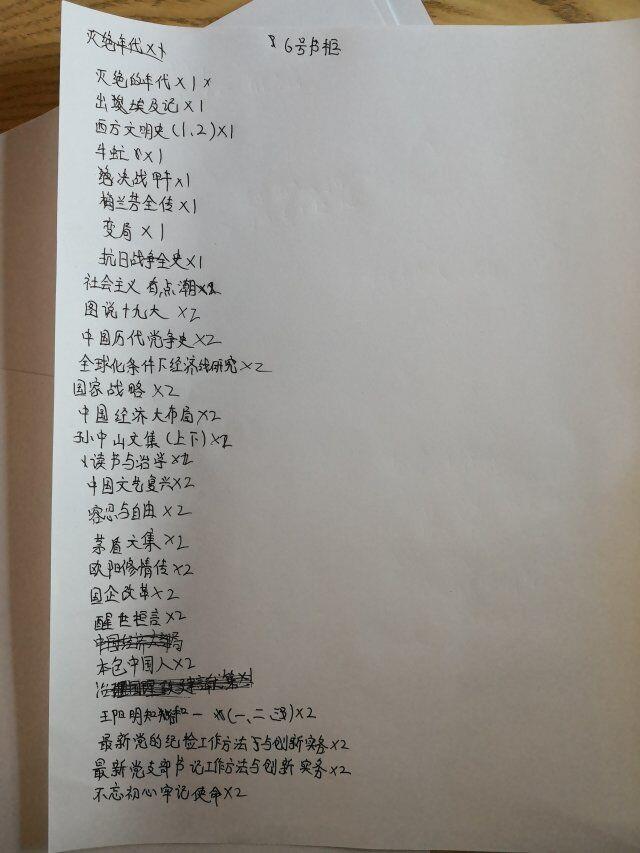 灭绝年代×1
6号书柜
灭绝的年代×1
出埃及记×1
西方文明史(1、2)×1
牛虻×1
绝决战甲午×1
梅兰芳全传×1
变局×1
抗日战争全史×1
社会主义有点潮×2
图说十九大×2
中国历代党争史×2
全球化条件下经济线研究×2
国家战略×2
中国经济大布局×2
孙中山文集(上下)×2
读书与治学×2
中国文艺复兴×2
容忍与自由×2
茅盾文集×2
欧阳修情传×2
国企改革×2
醒世恒言×2
中国经济大布局
本色中国人×2
王阳明知和一(一、二、三)×2
最新党的纪检工作方法与创新实务×2
最新党支部书记工作方法与创新实务×2
不忘初心牢记使命×2